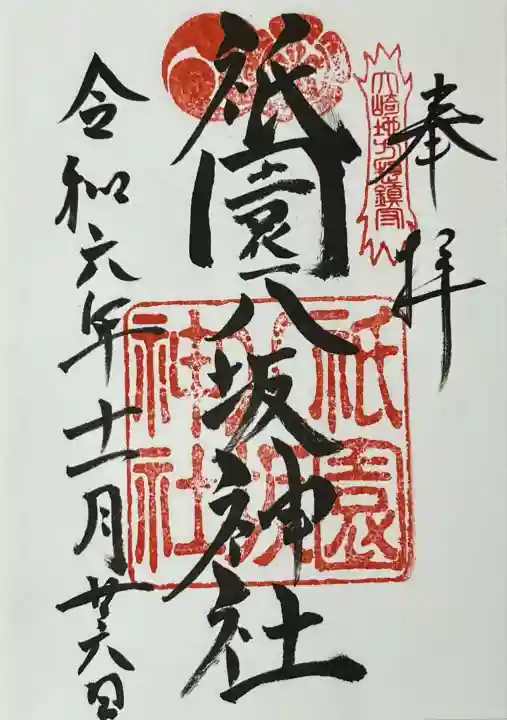 奉拝
大崎地方総鎮守
祇園八坂神社
祇園八坂神社
令和六年十一月廿六日